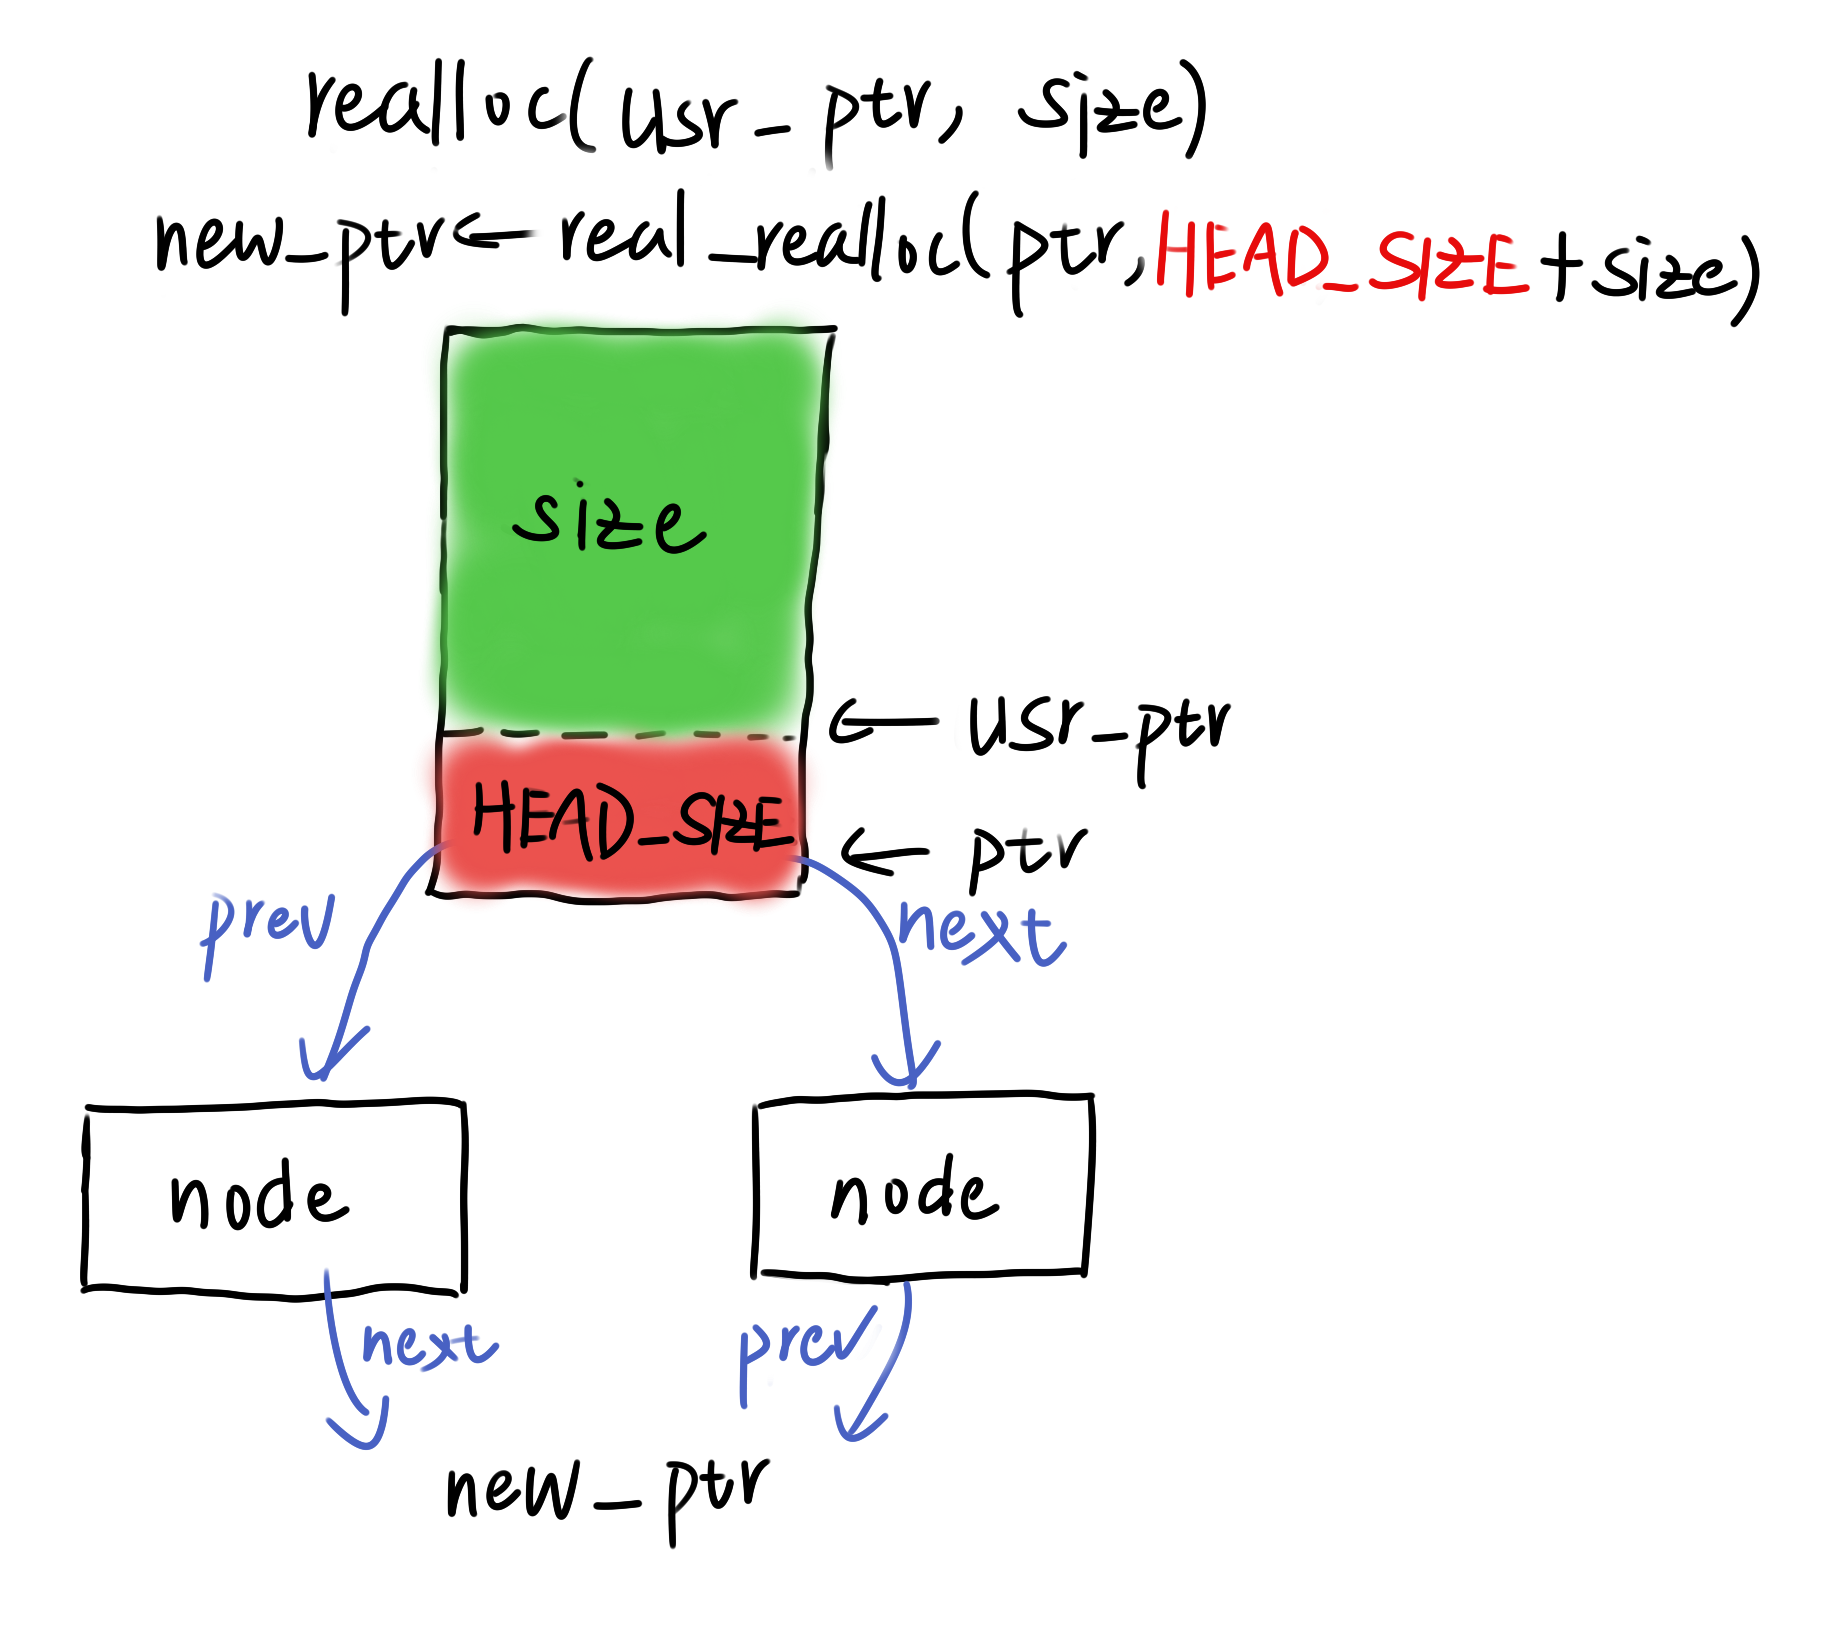 realloc(usr_ptr, size)
new_ptr← real_realloc(ptr,HEAD_SIZE+size)
size
← usr_ptr
HEAD_SIZE
← ptr
prev
next
node
node
next
prev
new_ptr